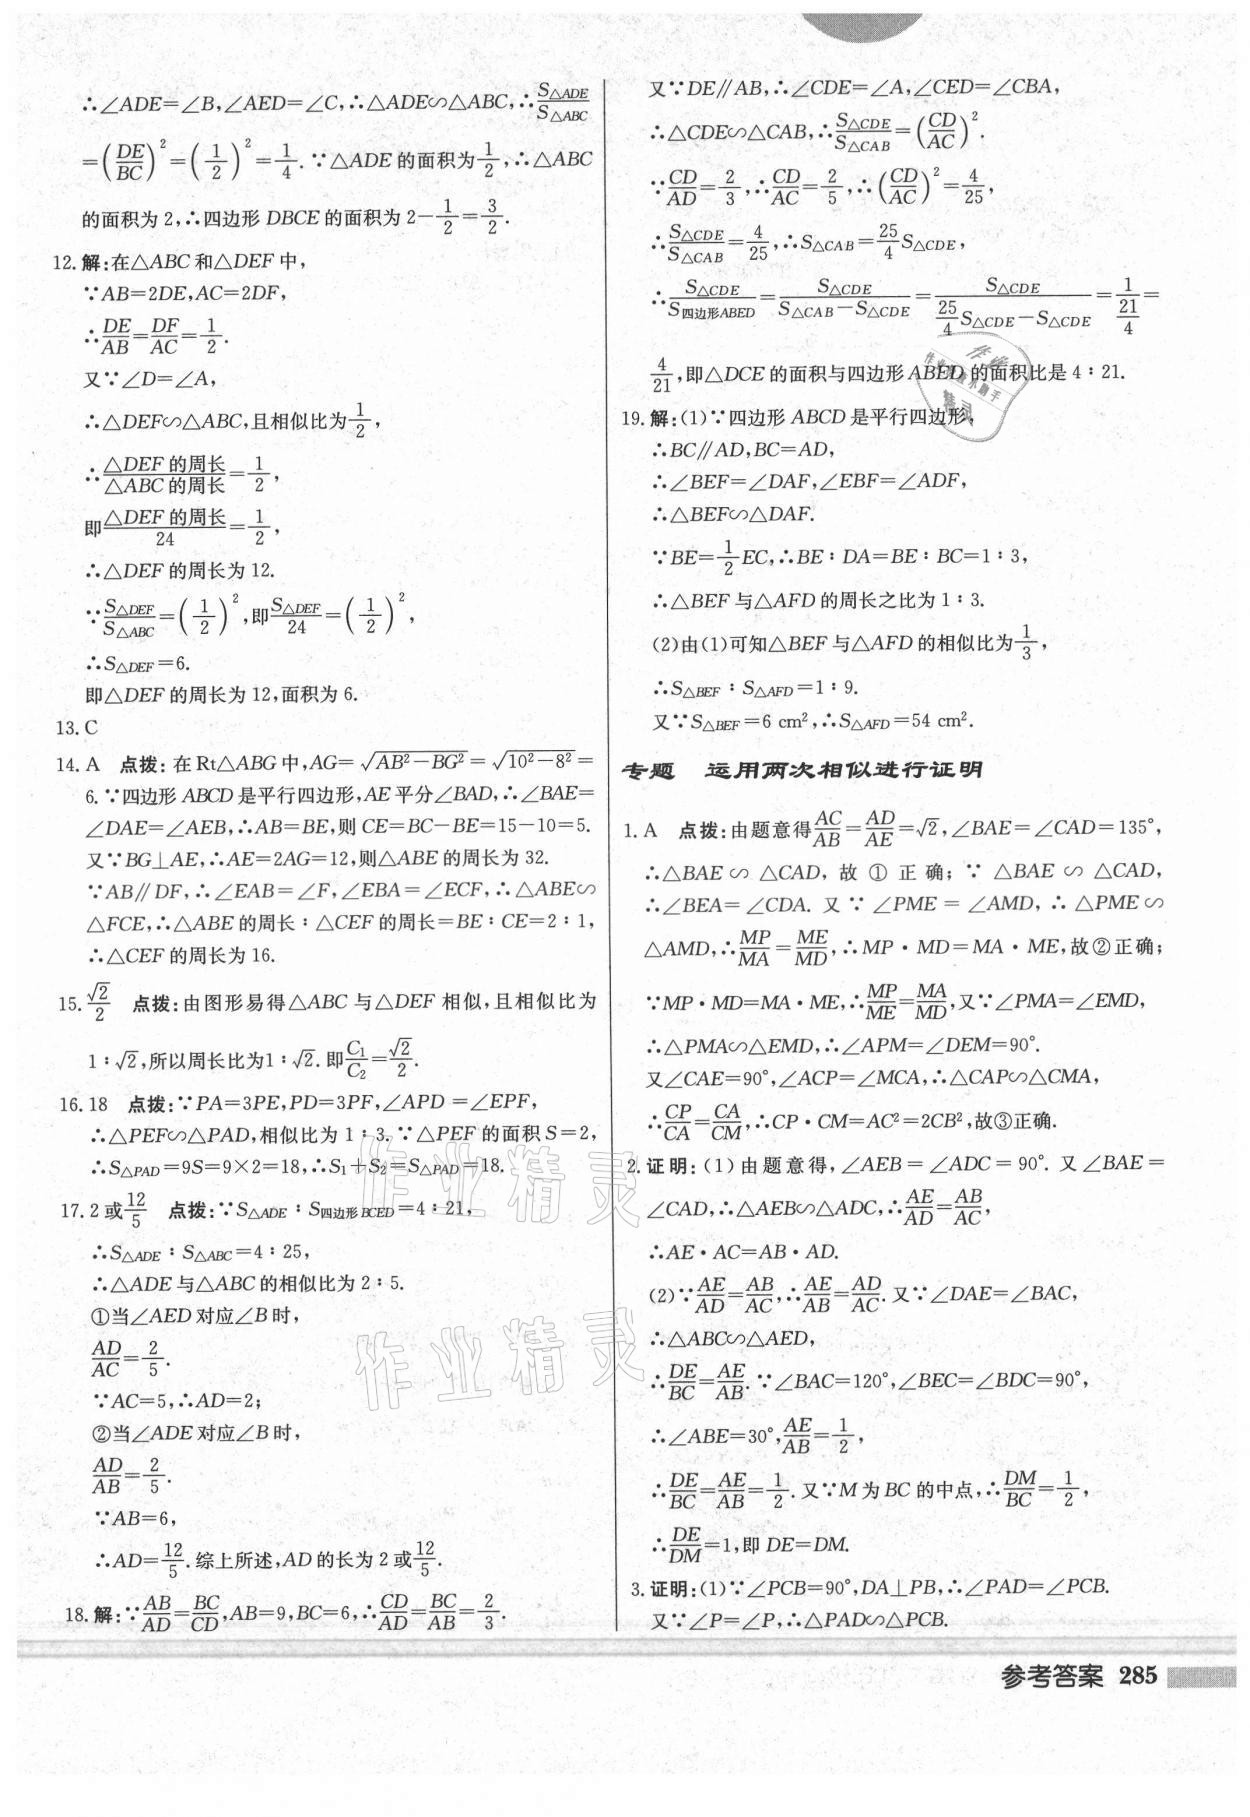 ∴∠ADE=∠B,∠AED=∠C,∴△ADE∽△ABC,∴S△ADE/S△ABC
=(DE/BC)²=(1/2)²=1/4.∵△ADE的面积为1/2,∴△ABC
的面积为2,∴四边形DBCE的面积为2-1/2=3/2.
12.解:在△ABC和△DEF中,
∵AB=2DE,AC=2DF,
∴DE/AB=DF/AC=1/2.
又∵∠D=∠A,
∴△DEF∽△ABC,且相似比为1/2,
∴△DEF的周长/△ABC的周长=1/2,
即△DEF的周长/24=1/2,
∴△DEF的周长为12.
∵S△DEF/S△ABC=(1/2)²,即S△DEF/24=(1/2)²,
∴S△DEF=6.
即△DEF的周长为12,面积为6.
13.C
14.A 点拨:在Rt△ABG中,AG=√(AB²-BG²)=√(10²-8²)=
6.∵四边形ABCD是平行四边形,AE平分∠BAD,∴∠BAE=
∠DAE=∠AEB,∴AB=BE,则CE=BC-BE=15-10=5.
又∵BG⊥AE,∴AE=2AG=12,则△ABE的周长为32.
∵AB∥DF,∴∠EAB=∠F,∠EBA=∠ECF,∴△ABE∽
△FCE,∴△ABE的周长∶△CEF的周长=BE∶CE=2∶1,
∴△CEF的周长为16.
15.√2/2 点拨:由图形易得△ABC与△DEF相似,且相似比为
1∶√2,所以周长比为1∶√2.即C₁/C₂=√2/2.
16.18 点拨:∵PA=3PE,PD=3PF,∠APD=∠EPF,
∴△PEF∽△PAD,相似比为1∶3.∵△PEF的面积S=2,
∴S△PAD=9S=9×2=18,∴S₁+S₂=S△PAD=18.
17.2或12/5 点拨:∵S△ADE∶S四边形BCED=4∶21,
∴S△ADE∶S△ABC=4∶25,
∴△ADE与△ABC的相似比为2∶5.
①当∠AED对应∠B时,
AD/AC=2/5.
∵AC=5,∴AD=2;
②当∠ADE对应∠B时,
AD/AB=2/5.
∵AB=6,
∴AD=12/5.综上所述,AD的长为2或12/5.
18.解:∵AB/AD=BC/CD,AB=9,BC=6,∴CD/AD=BC/AB=2/3.
又∵DE∥AB,∴∠CDE=∠A,∠CED=∠CBA,
∴△CDE∽△CAB,∴S△CDE/S△CAB=(CD/AC)².
∵CD/AD=2/3,∴CD/AC=2/5,∴(CD/AC)²=4/25,
∴S△CDE/S△CAB=4/25,∴S△CAB=25/4S△CDE,
∴S△CDE/S四边形ABED=S△CDE/(S△CAB-S△CDE)=S△CDE/(25/4S△CDE-S△CDE)=1/(21/4)=
4/21,即△DCE的面积与四边形ABED的面积比是4∶21.
19.解:(1)∵四边形ABCD是平行四边形,
∴BC∥AD,BC=AD,
∴∠BEF=∠DAF,∠EBF=∠ADF,
∴△BEF∽△DAF.
∵BE=1/2EC,∴BE∶DA=BE∶BC=1∶3,
∴△BEF与△AFD的周长之比为1∶3.
(2)由(1)可知△BEF与△AFD的相似比为1/3,
∴S△BEF∶S△AFD=1∶9.
又∵S△BEF=6 cm²,∴S△AFD=54 cm².
专题 运用两次相似进行证明
1.A 点拨:由题意得AC/AB=AD/AE=√2,∠BAE=∠CAD=135°,
∴△BAE∽△CAD,故①正确;∵△BAE∽△CAD,
∴∠BEA=∠CDA.又∵∠PME=∠AMD,∴△PME∽
△AMD,∴MP/MA=ME/MD,∴MP·MD=MA·ME,故②正确;
∵MP·MD=MA·ME,∴MP/ME=MA/MD,又∵∠PMA=∠EMD,
∴△PMA∽△EMD,∴∠APM=∠DEM=90°.
又∠CAE=90°,∠ACP=∠MCA,∴△CAP∽△CMA,
∴CP/CA=CA/CM,∴CP·CM=AC²=2CB²,故③正确.
2.证明:(1)由题意得,∠AEB=∠ADC=90°.又∠BAE=
∠CAD,∴△AEB∽△ADC,∴AE/AD=AB/AC,
∴AE·AC=AB·AD.
(2)∵AE/AD=AB/AC,∴AE/AB=AD/AC.又∵∠DAE=∠BAC,
∴△ABC∽△AED,
∴DE/BC=AE/AB.∵∠BAC=120°,∠BEC=∠BDC=90°,
∴∠ABE=30°,AE/AB=1/2,
∴DE/BC=AE/AB=1/2.又∵M为BC的中点,∴DM/BC=1/2,
∴DE/DM=1,即DE=DM.
3.证明:(1)∵∠PCB=90°,DA⊥PB,∴∠PAD=∠PCB.
又∵∠P=∠P,∴△PAD∽△PCB.
参考答案 285
作业精灵
作业精灵